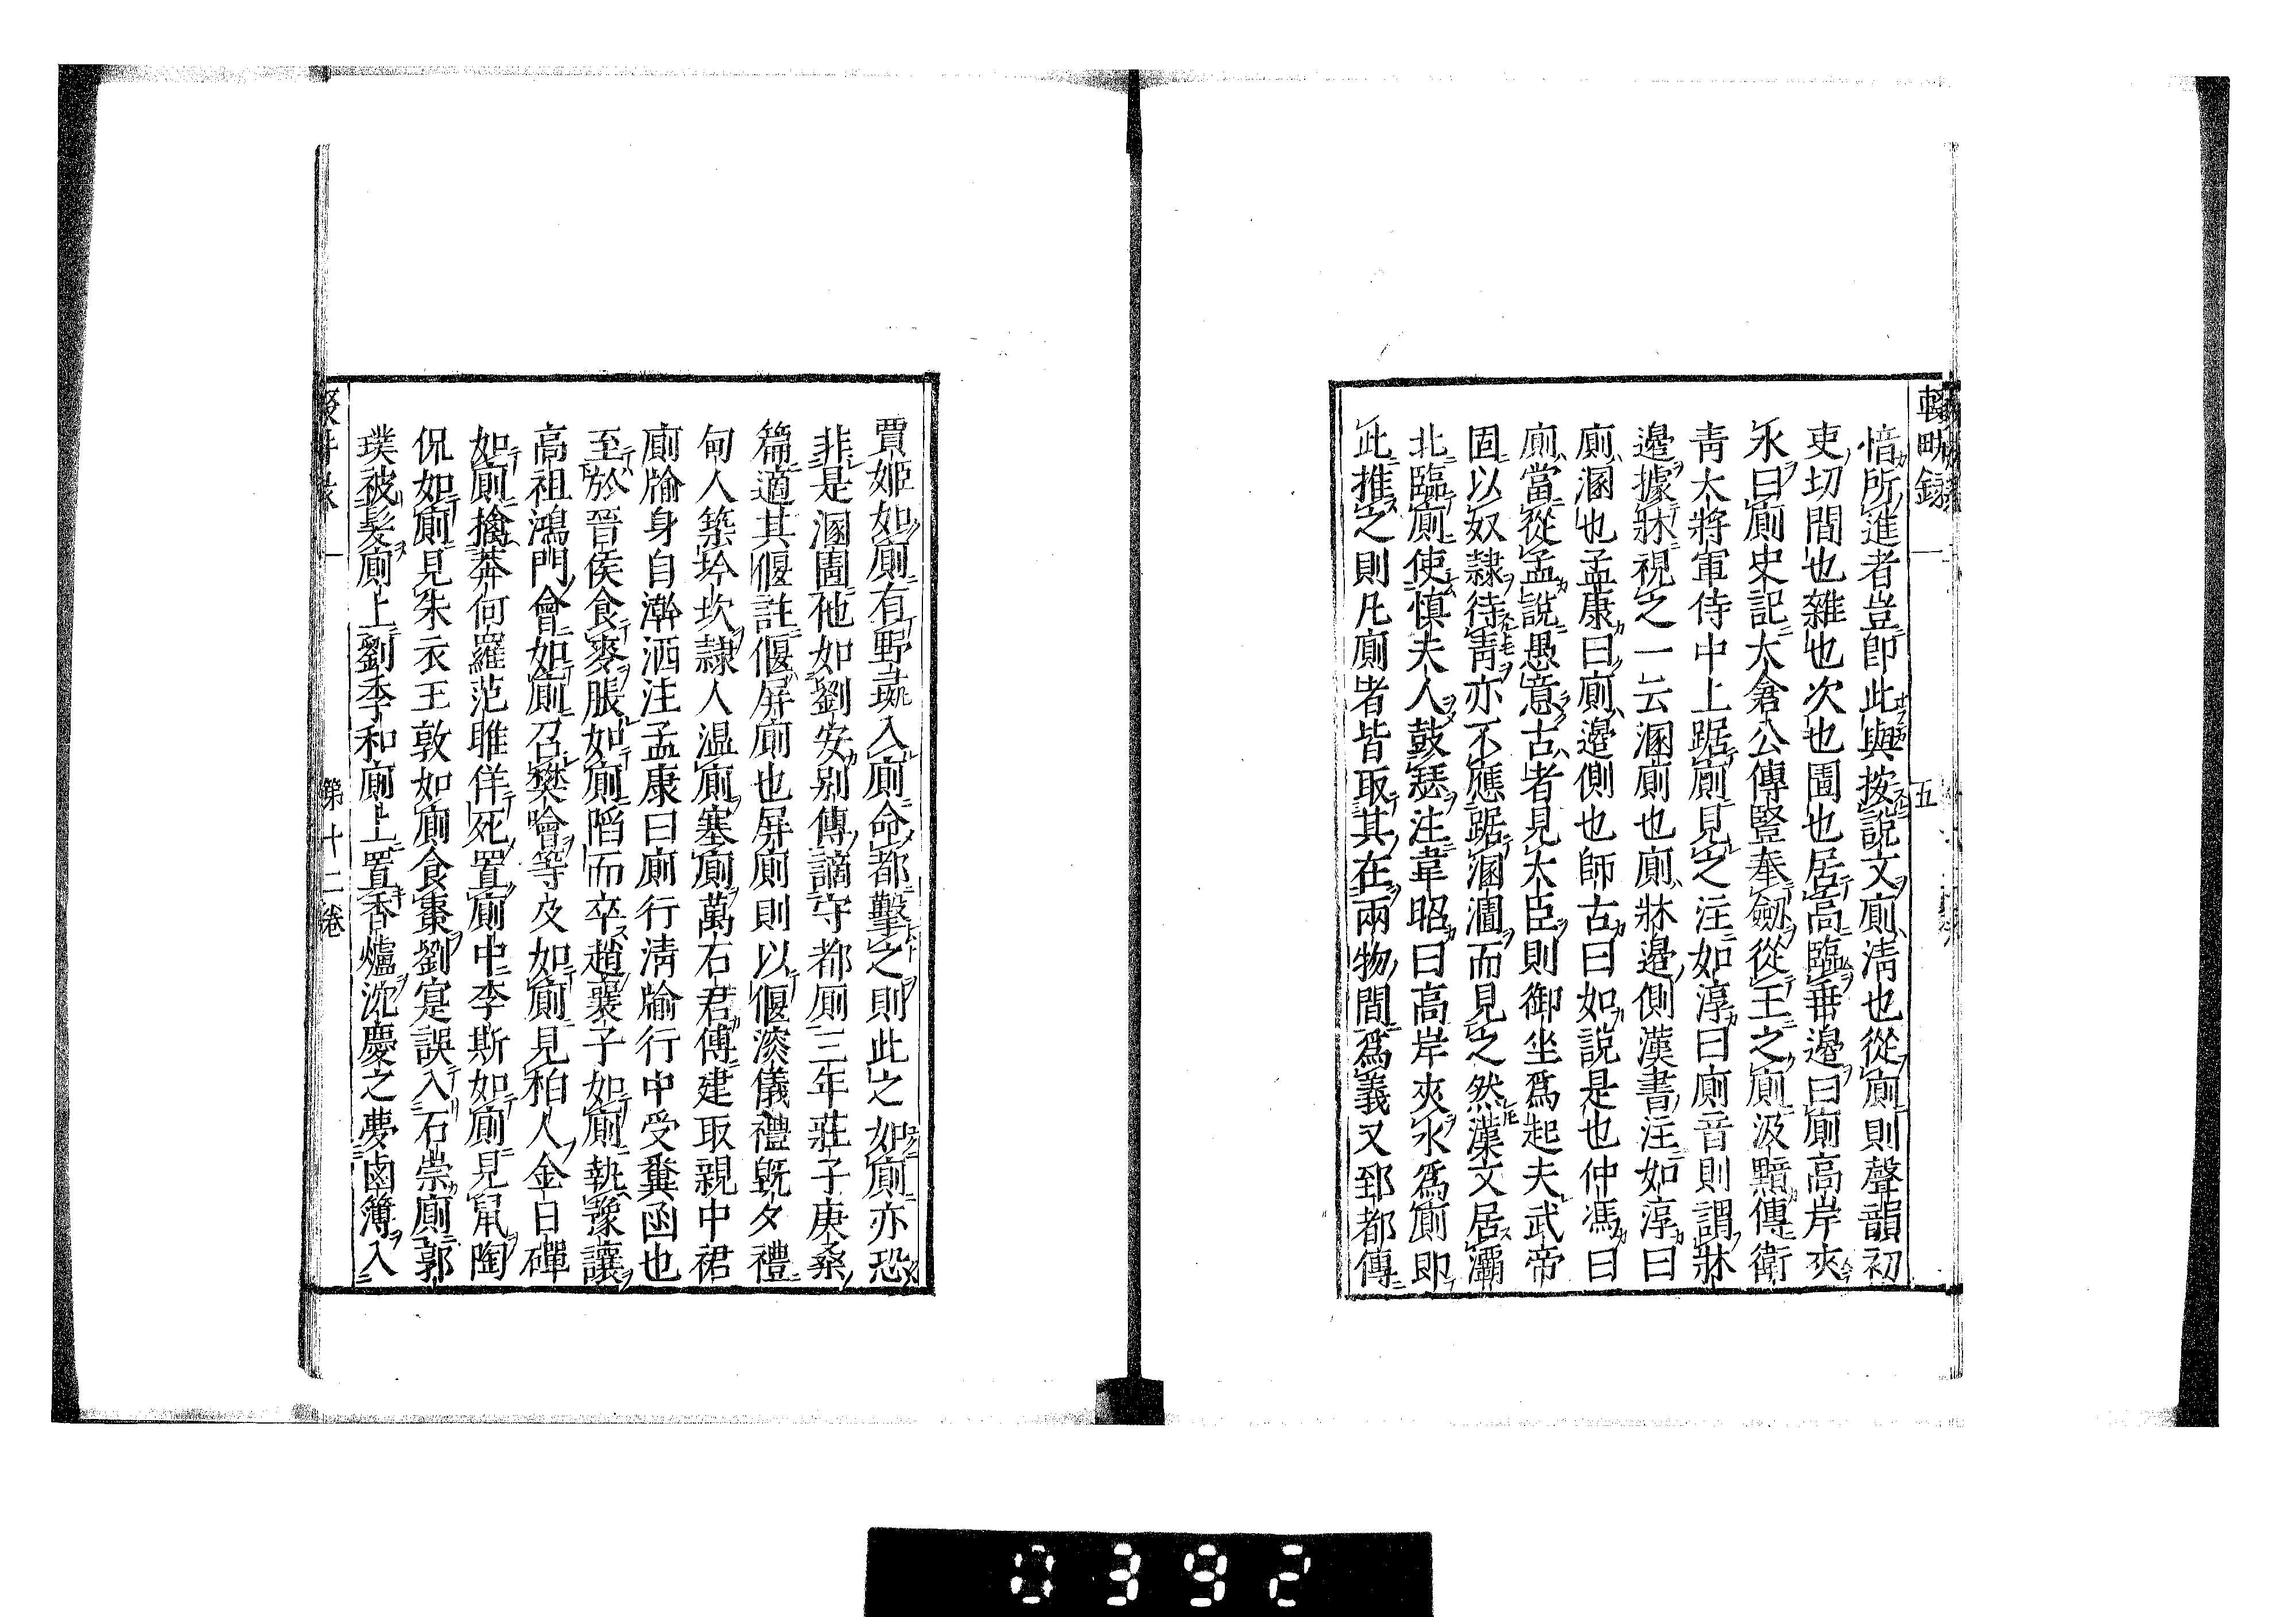 輟畊錄
五
愔所進者豈即此與按說文廁清也從廁則聲韻初
吏切間也雜也次也圊也居高臨垂邊曰廁高岸夾
水曰廁史記太倉公傳豎奉劔從王之廁汲黯傳衛
青大將軍侍中上踞廁見之注如淳曰廁音則謂牀
邊據牀視之一云溷廁也廁牀邊側漢書注如淳曰
廁溷也孟康曰廁邊側也師古曰如說是也仲馮曰
廁當從孟說愚意古者見大臣則御坐爲起夫武帝
固以奴隸待靑亦不應踞溷圊而見之然漢文居灞
北臨廁使愼夫人鼓瑟注韋昭曰高岸夾水爲廁即
此推之則凡廁者皆取其在兩物間爲義又郅都傳
賈姬如廁有野彘入廁命都擊之則此之如廁亦恐
非是溷圊他如劉安别傳謫守都厠三年莊子庚桑
篇適其偃註偃屏廁也屏廁則以偃溲儀禮旣夕禮
甸人築坅坎隸人涅廁塞廁萬石君傳建取親中裙
廁牏身自澣洒注孟康曰廁行淸牏行中受糞函也
至於晉侯食麥脹如廁陷而卒趙襄子如廁執豫讓
高祖鴻門會如廁召樊噲等及如廁見柏人金日磾
如廁擒莽何羅范雎佯死置廁中李斯如廁見鼠陶
侃如廁見朱衣王敦如廁食棗劉寔誤入石崇廁郭
璞被髮廁上劉季和廁上置香爐沈慶之夢鹵簿入
第十二卷
0392